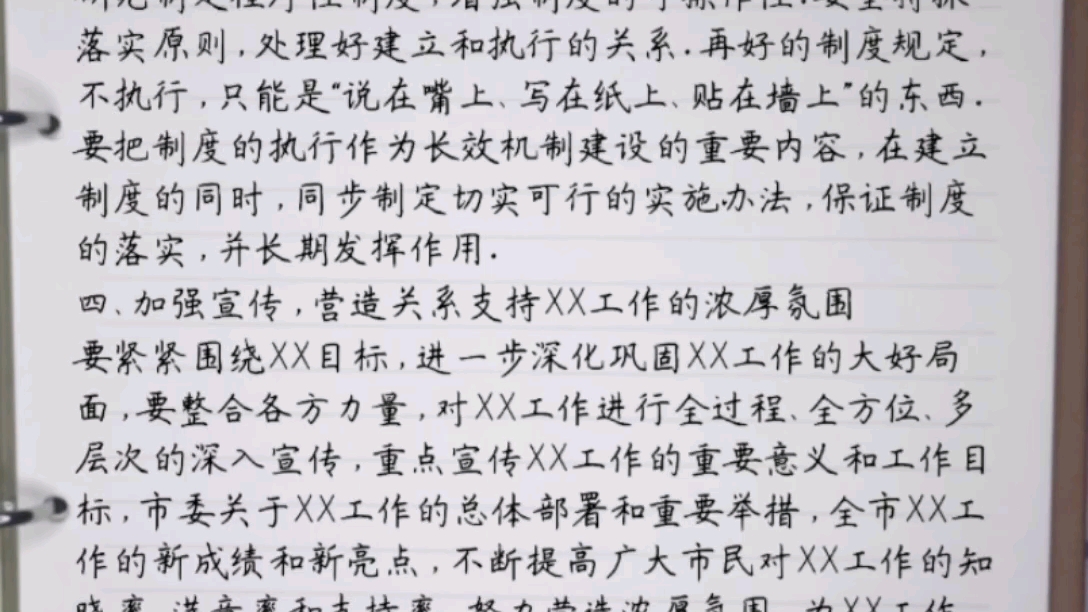 研究制定程序性制度,增强制度的可操作性.要坚持抓
落实原则,处理好建立和执行的关系.再好的制度规定,
不执行,只能是“说在嘴上、写在纸上、贴在墙上”的东西.
要把制度的执行作为长效机制建设的重要内容,在建立
制度的同时,同步制定切实可行的实施办法,保证制度
的落实,并长期发挥作用.
四、加强宣传,营造关系支持XX工作的浓厚氛围
要紧紧围绕XX目标,进一步深化巩固XX工作的大好局
面,要整合各方力量,对XX工作进行全过程、全方位、多
层次的深入宣传,重点宣传XX工作的重要意义和工作目
标,市委关于XX工作的总体部署和重要举措,全市XX工
作的新成绩和新亮点,不断提高广大市民对XX工作的知
晓率、满意率和支持率,努力营造浓厚氛围,为XX工作